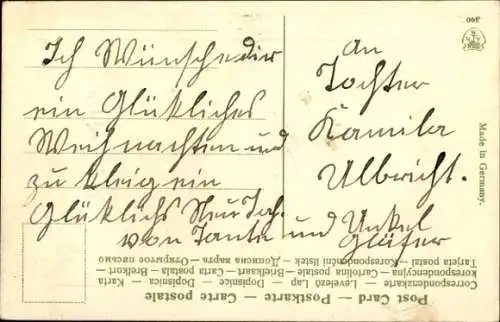 Ich Wünsche dir
ein Glükliches
Weihnachten und
zu kleig ein
Glüklichs Neu Jah.
von Tante und Unkel
Gläfer
an
Tochter
Kamila
Ulbricht.
390
Made in Germany.
Post Card — Postkarte — Carte postale
Correspondenzkarte — Levelező Lap — Dopisnice — Dopisnica — Karta
korespondencyjna — Cartolina postale — Briefkaart — Carta postala — Brefkort —
Tarjeta postal — Korespondenční lístek — Дописна карта — Открытое письмо